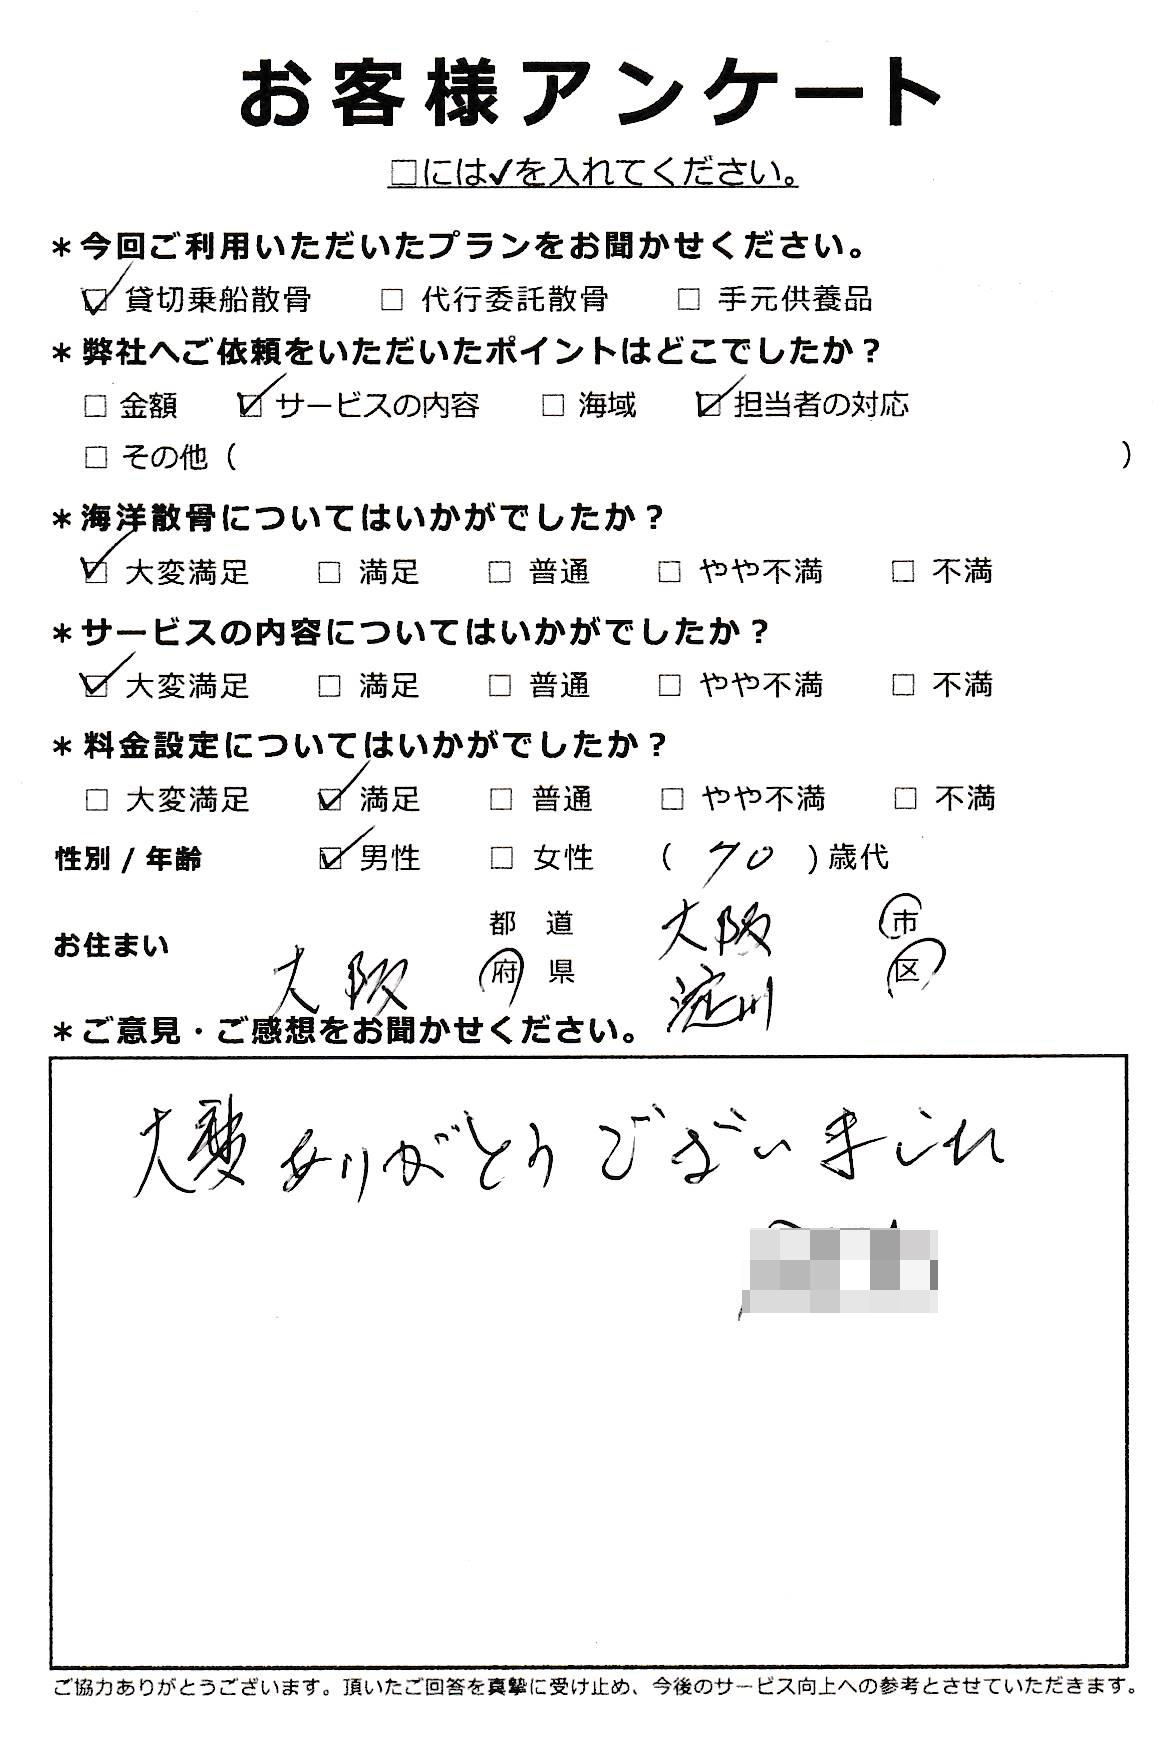 お客様アンケート
□には✓を入れてください。
＊今回ご利用いただいたプランをお聞かせください。
☑ 貸切乗船散骨 □ 代行委託散骨 □ 手元供養品
＊弊社へご依頼をいただいたポイントはどこでしたか？
□ 金額 ☑ サービスの内容 □ 海域 ☑ 担当者の対応
□ その他（ ）
＊海洋散骨についてはいかがでしたか？
☑ 大変満足 □ 満足 □ 普通 □ やや不満 □ 不満
＊サービスの内容についてはいかがでしたか？
☑ 大変満足 □ 満足 □ 普通 □ やや不満 □ 不満
＊料金設定についてはいかがでしたか？
□ 大変満足 ☑ 満足 □ 普通 □ やや不満 □ 不満
性別 / 年齢 ☑ 男性 □ 女性 （ 70 ）歳代
都 道 大阪 市
お住まい 大阪 府 県 淀川 区
＊ご意見・ご感想をお聞かせください。
大変ありがとうございました
ご協力ありがとうございます。頂いたご回答を真摯に受け止め、今後のサービス向上への参考とさせていただきます。